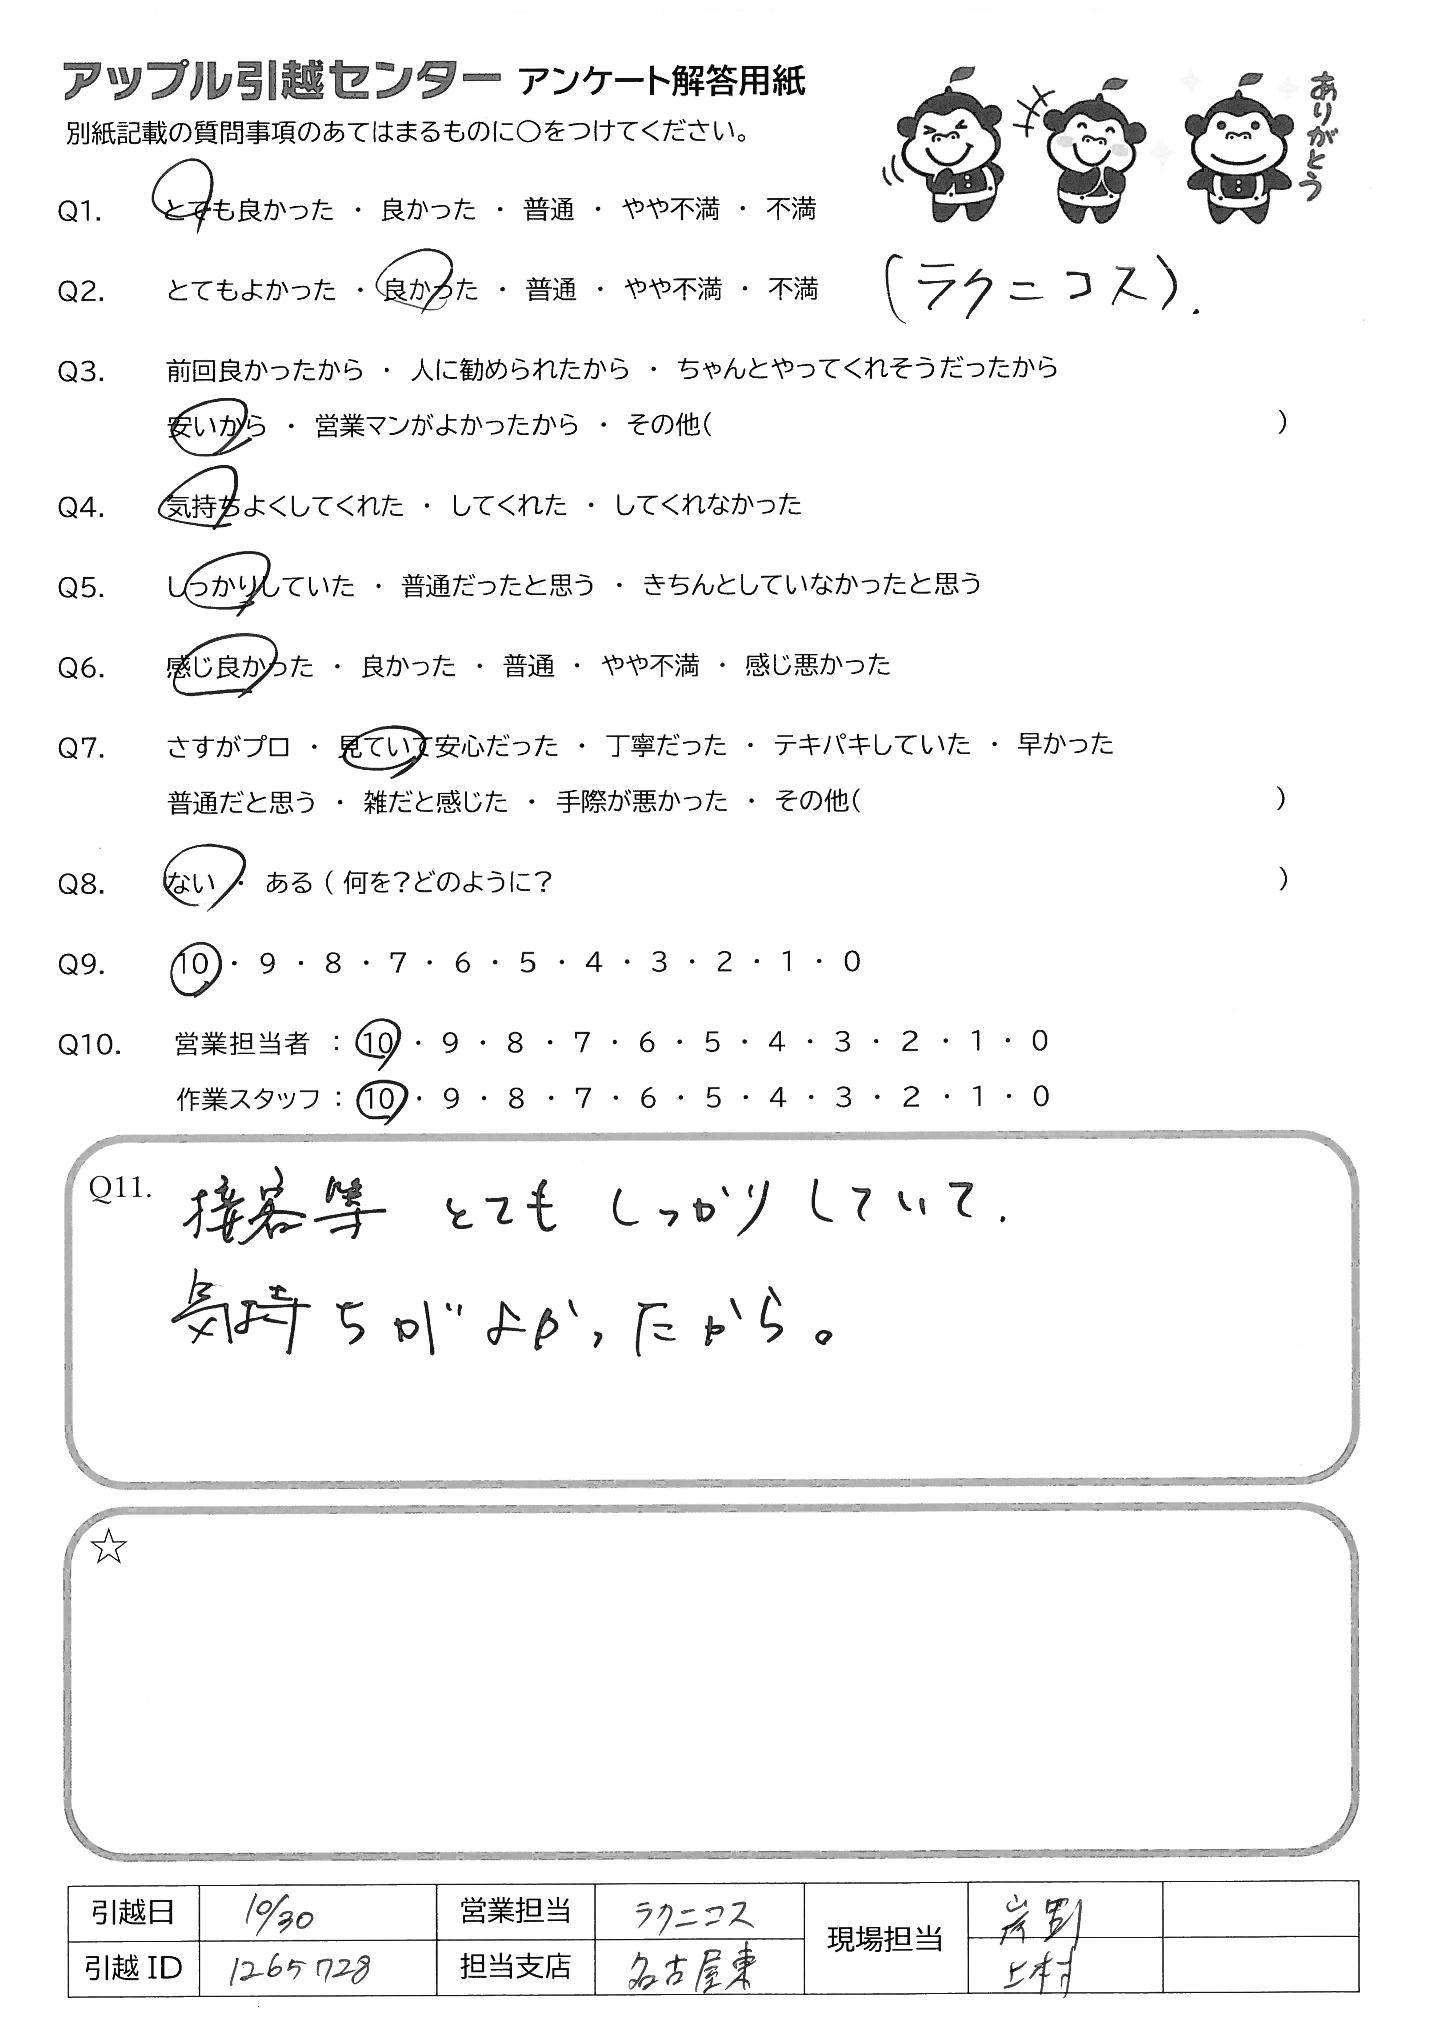 アップル引越センター アンケート解答用紙
別紙記載の質問事項のあてはまるものに〇をつけてください。
ありがとう
Q1. とても良かった ・ 良かった ・ 普通 ・ やや不満 ・ 不満
Q2. とてもよかった ・ 良かった ・ 普通 ・ やや不満 ・ 不満 (ラクニコス).
Q3. 前回良かったから ・ 人に勧められたから ・ ちゃんとやってくれそうだったから
安いから ・ 営業マンがよかったから ・ その他( )
Q4. 気持ちよくしてくれた ・ してくれた ・ してくれなかった
Q5. しっかりしていた ・ 普通だったと思う ・ きちんとしていなかったと思う
Q6. 感じ良かった ・ 良かった ・ 普通 ・ やや不満 ・ 感じ悪かった
Q7. さすがプロ ・ 見ていて安心だった ・ 丁寧だった ・ テキパキしていた ・ 早かった
普通だと思う ・ 雑だと感じた ・ 手際が悪かった ・ その他( )
Q8. ない ・ ある ( 何を?どのように? )
Q9. 10 ・ 9 ・ 8 ・ 7 ・ 6 ・ 5 ・ 4 ・ 3 ・ 2 ・ 1 ・ 0
Q10. 営業担当者 : 10 ・ 9 ・ 8 ・ 7 ・ 6 ・ 5 ・ 4 ・ 3 ・ 2 ・ 1 ・ 0
作業スタッフ : 10 ・ 9 ・ 8 ・ 7 ・ 6 ・ 5 ・ 4 ・ 3 ・ 2 ・ 1 ・ 0
Q11. 接客等 とても しっかりしていて.
気持ちがよかったから。
☆
引越日 10/30 営業担当 ラクニコス 現場担当
引越ID 1265728 担当支店 名古屋東 上村